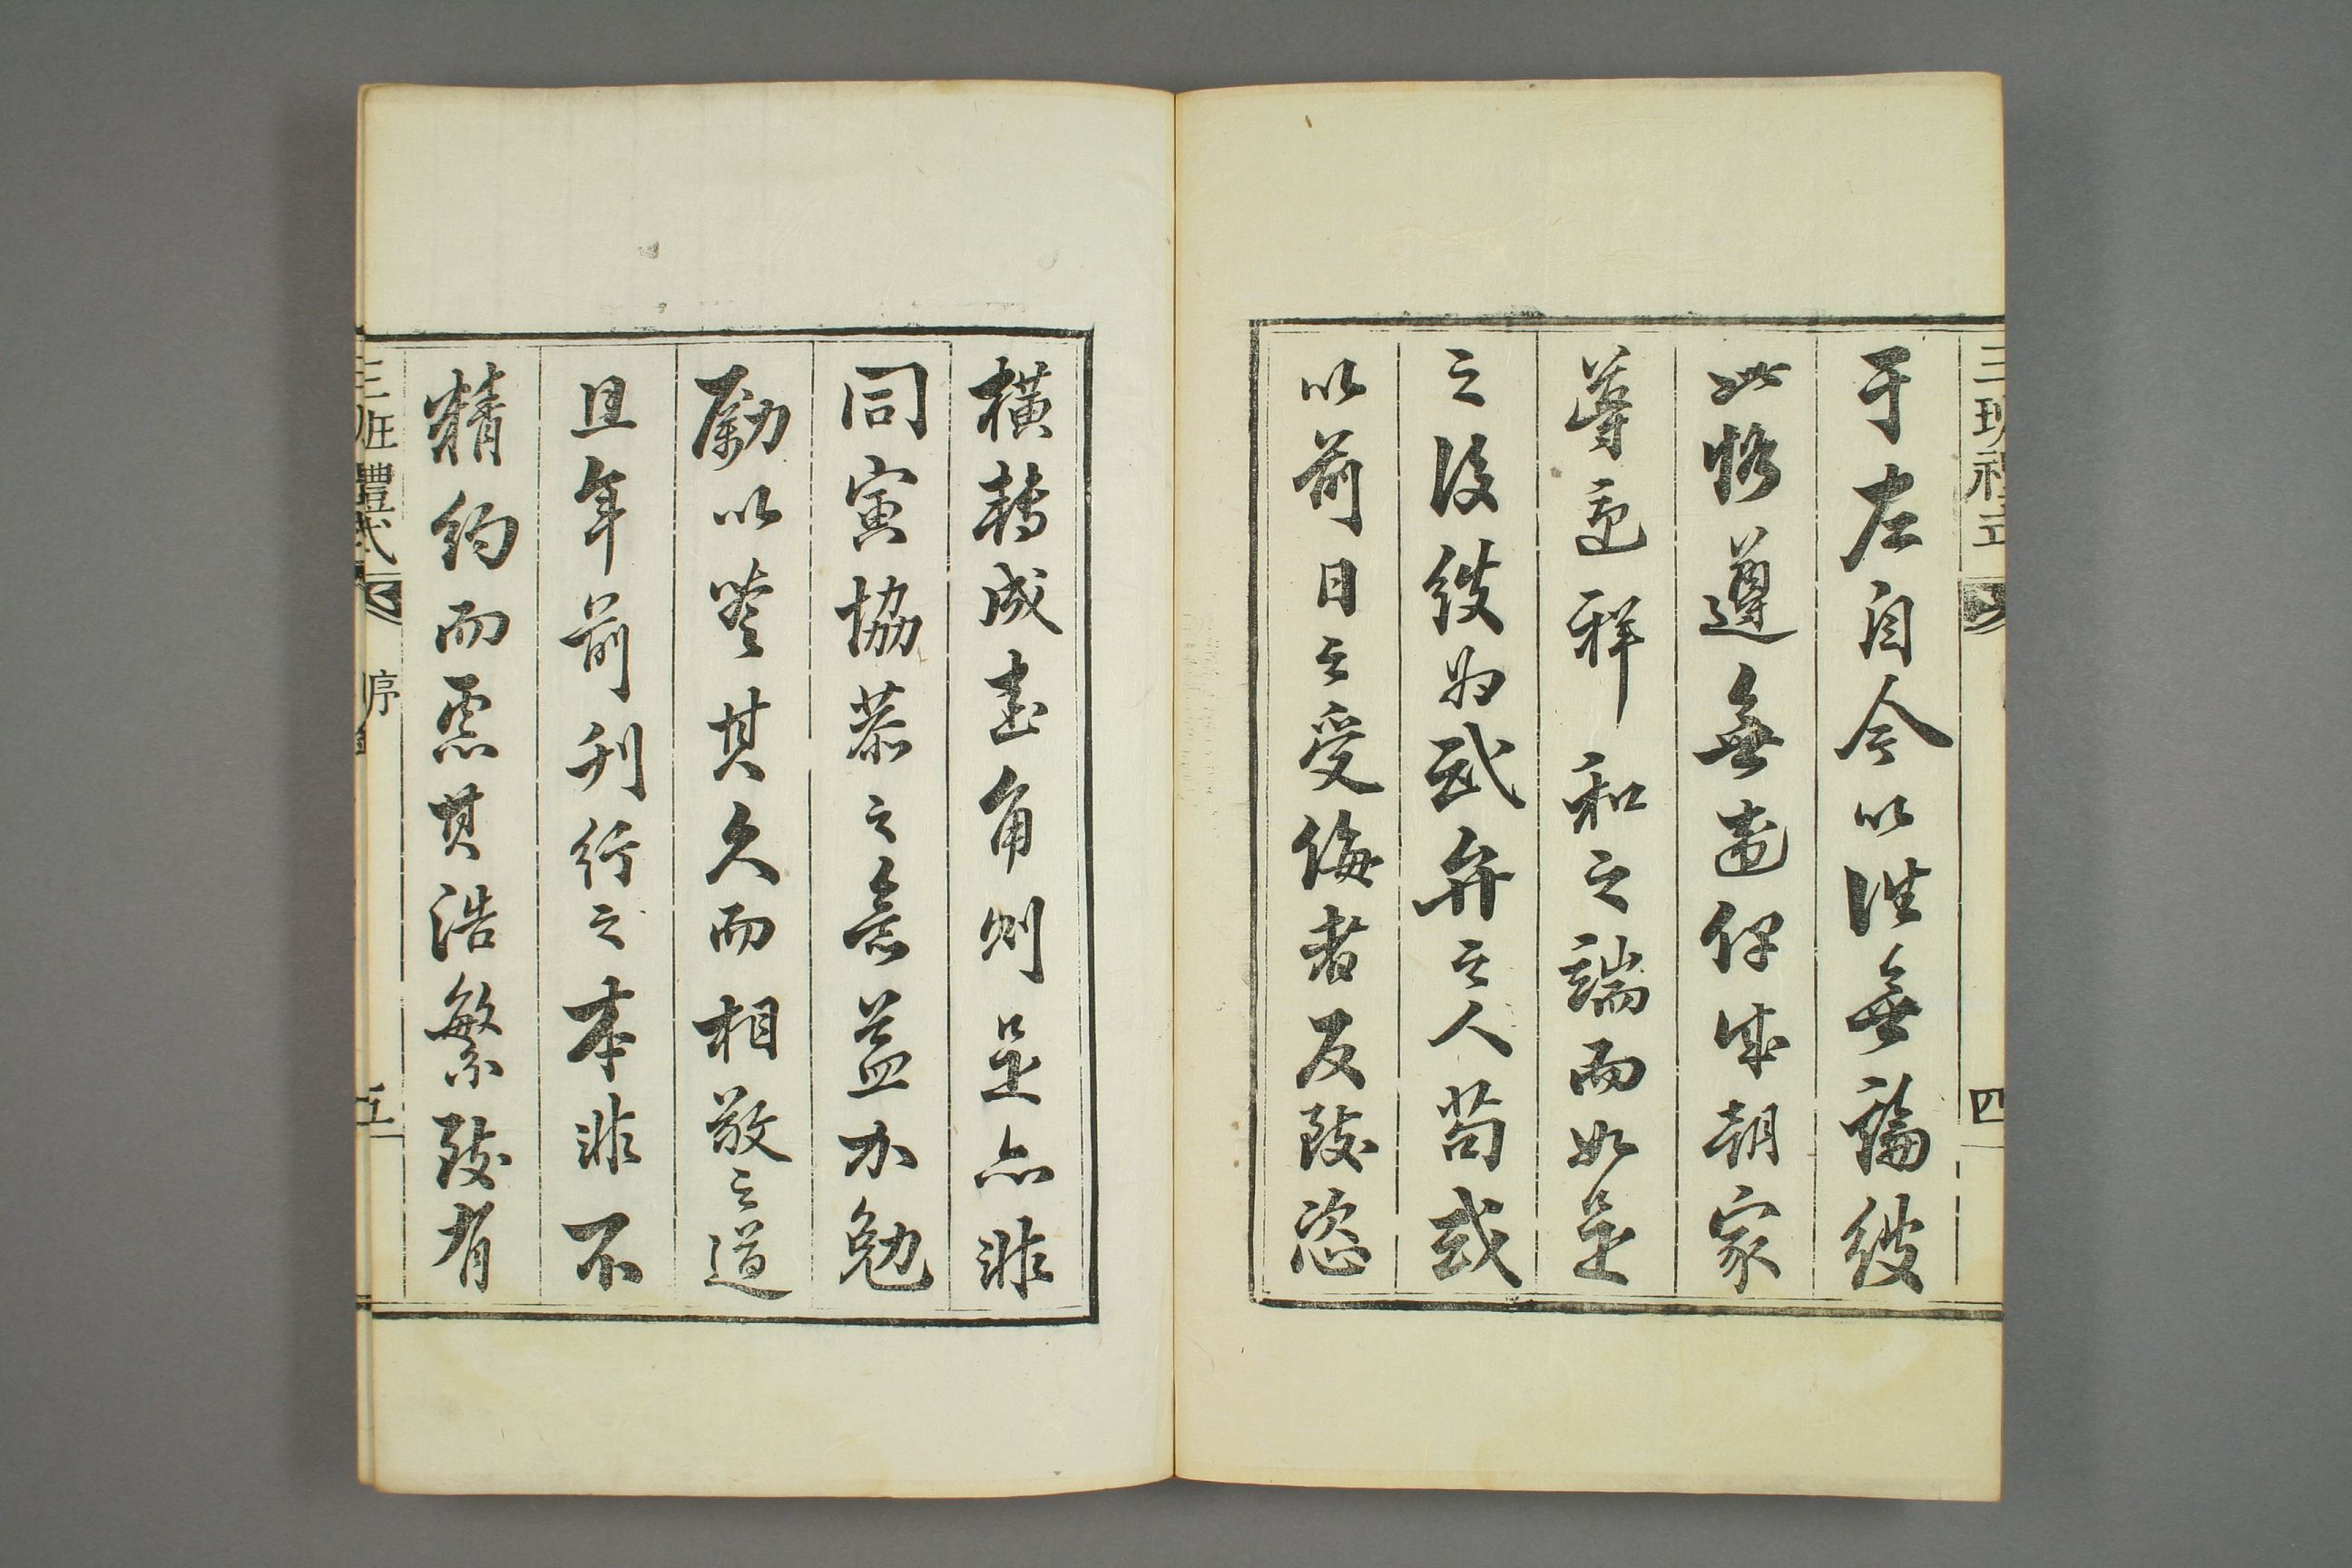 三班禮式
四
于左自今以往無論彼
此恪遵無違俾成朝家
導迎祥和之端而如是
之後彼為武弁之人苟或
以前日之受侮者反致恣
橫轉成圭角則是亦非
同寅協恭之意益加勉
勵以其久而相敬之道
且年前刊行之本非不
精約而慮其浩繁致有
三班禮式
序
五